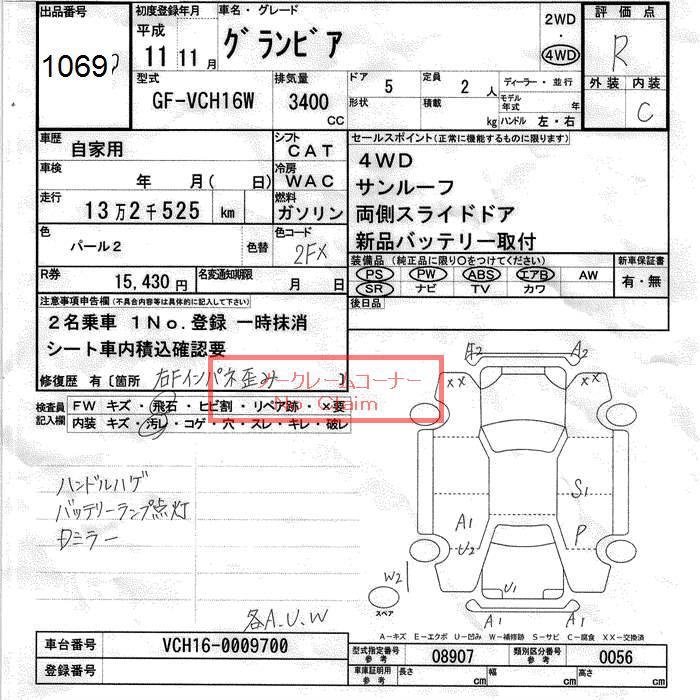 出品番号 初度登録年月 車名・グレード 2WD ・ 4WD 評価点
1069
平成 11 11月 グランビア R
型式 GF-VCH16W 排気量 3400 CC
ドア 5 定員 2 人 ディーラー・並行
形状 積載 kg モデル年式 年 ハンドル 左・右
外装 内装 C
車歴 自家用 シフト CAT
車検 年 月( 日) 冷房 WAC
走行 13万2千525 km 燃料 ガソリン
色 パール2 色替 色コード 2FX
R券 15,430円 名変通知期限 月 日
セールスポイント(正常に機能するものに限ります)
4WD
サンルーフ
両側スライドドア
新品バッテリー取付
装備品 (純正品に限り○をつけてください) 新車保証書
PS PW ABS エアB AW 有・無
SR ナビ TV カワ
後日品
注意事項申告欄 (不具合内容等は具体的に記入して下さい)
2名乗車 1No.登録 一時抹消
シート車内積込確認要
修復歴 有〔箇所 右Fインパネ歪み 〕
ノークレームコーナー
No. Claim
検査員記入欄 FW キズ・飛石・ヒビ割・リペア跡・×要
内装 キズ・汚レ・コゲ・穴・スレ・キレ・破レ
ハンドルハゲ
バッテリーランプ点灯
Dミラー
各A.U.W
A2 A2
XX XX
S1
A1 U2 P
W2 U1
スペア
A1 A1
A－キズ E－エクボ U－凹み W－補修跡 S－サビ C－腐食 XX－交換済
車台番号 VCH16-0009700
型式指定番号 参考 08907 類別区分番号 参考 0056
登録番号
車庫証明用 参考 長さ cm 幅 cm 高さ cm